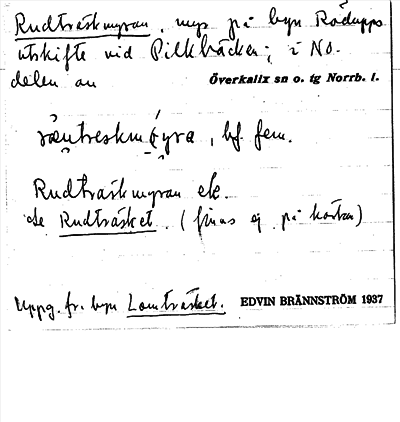 Rudträskmyran, myr på byn Rödupps
utskifte vid Pilkbäcken; i NO.
delen av Överkalix sn o. tg Norrb. l.
bf. fem.
Rudträskmyran ek.
se Rudträsket. (finns ej på kartan)
Uppg. fr. byn Lomträsket. EDVIN BRÄNNSTRÖM 1937